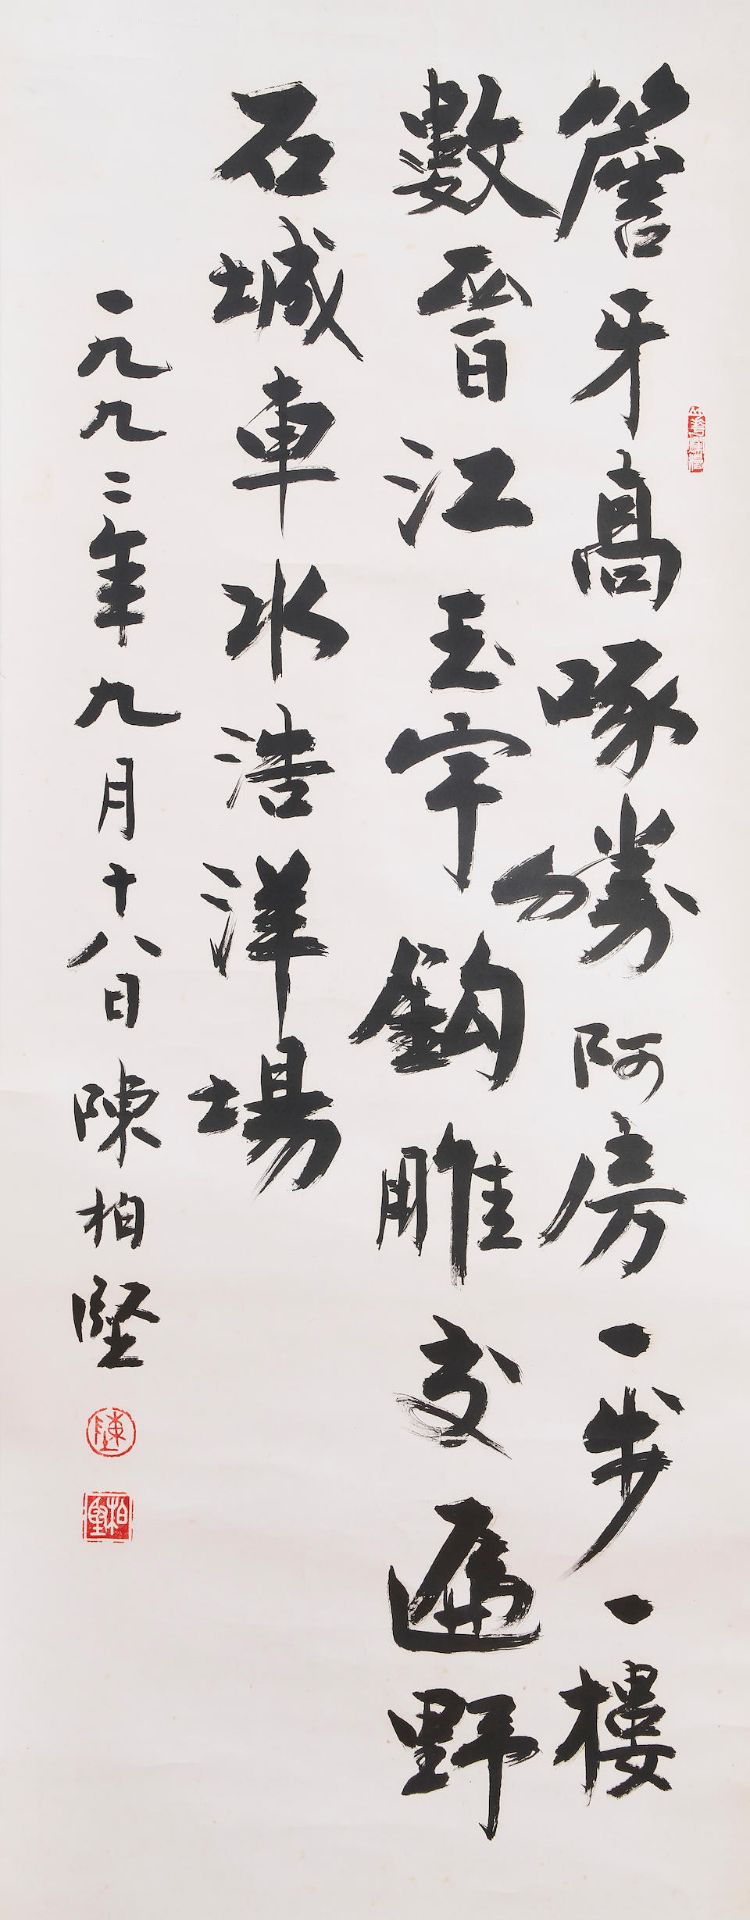 簷牙高啄勝阿房一步一樓
數晋江玉宇鈎雕交遍野
石城車水浩洋場
一九九二年九月十八日陳柏堅
陳
柏堅